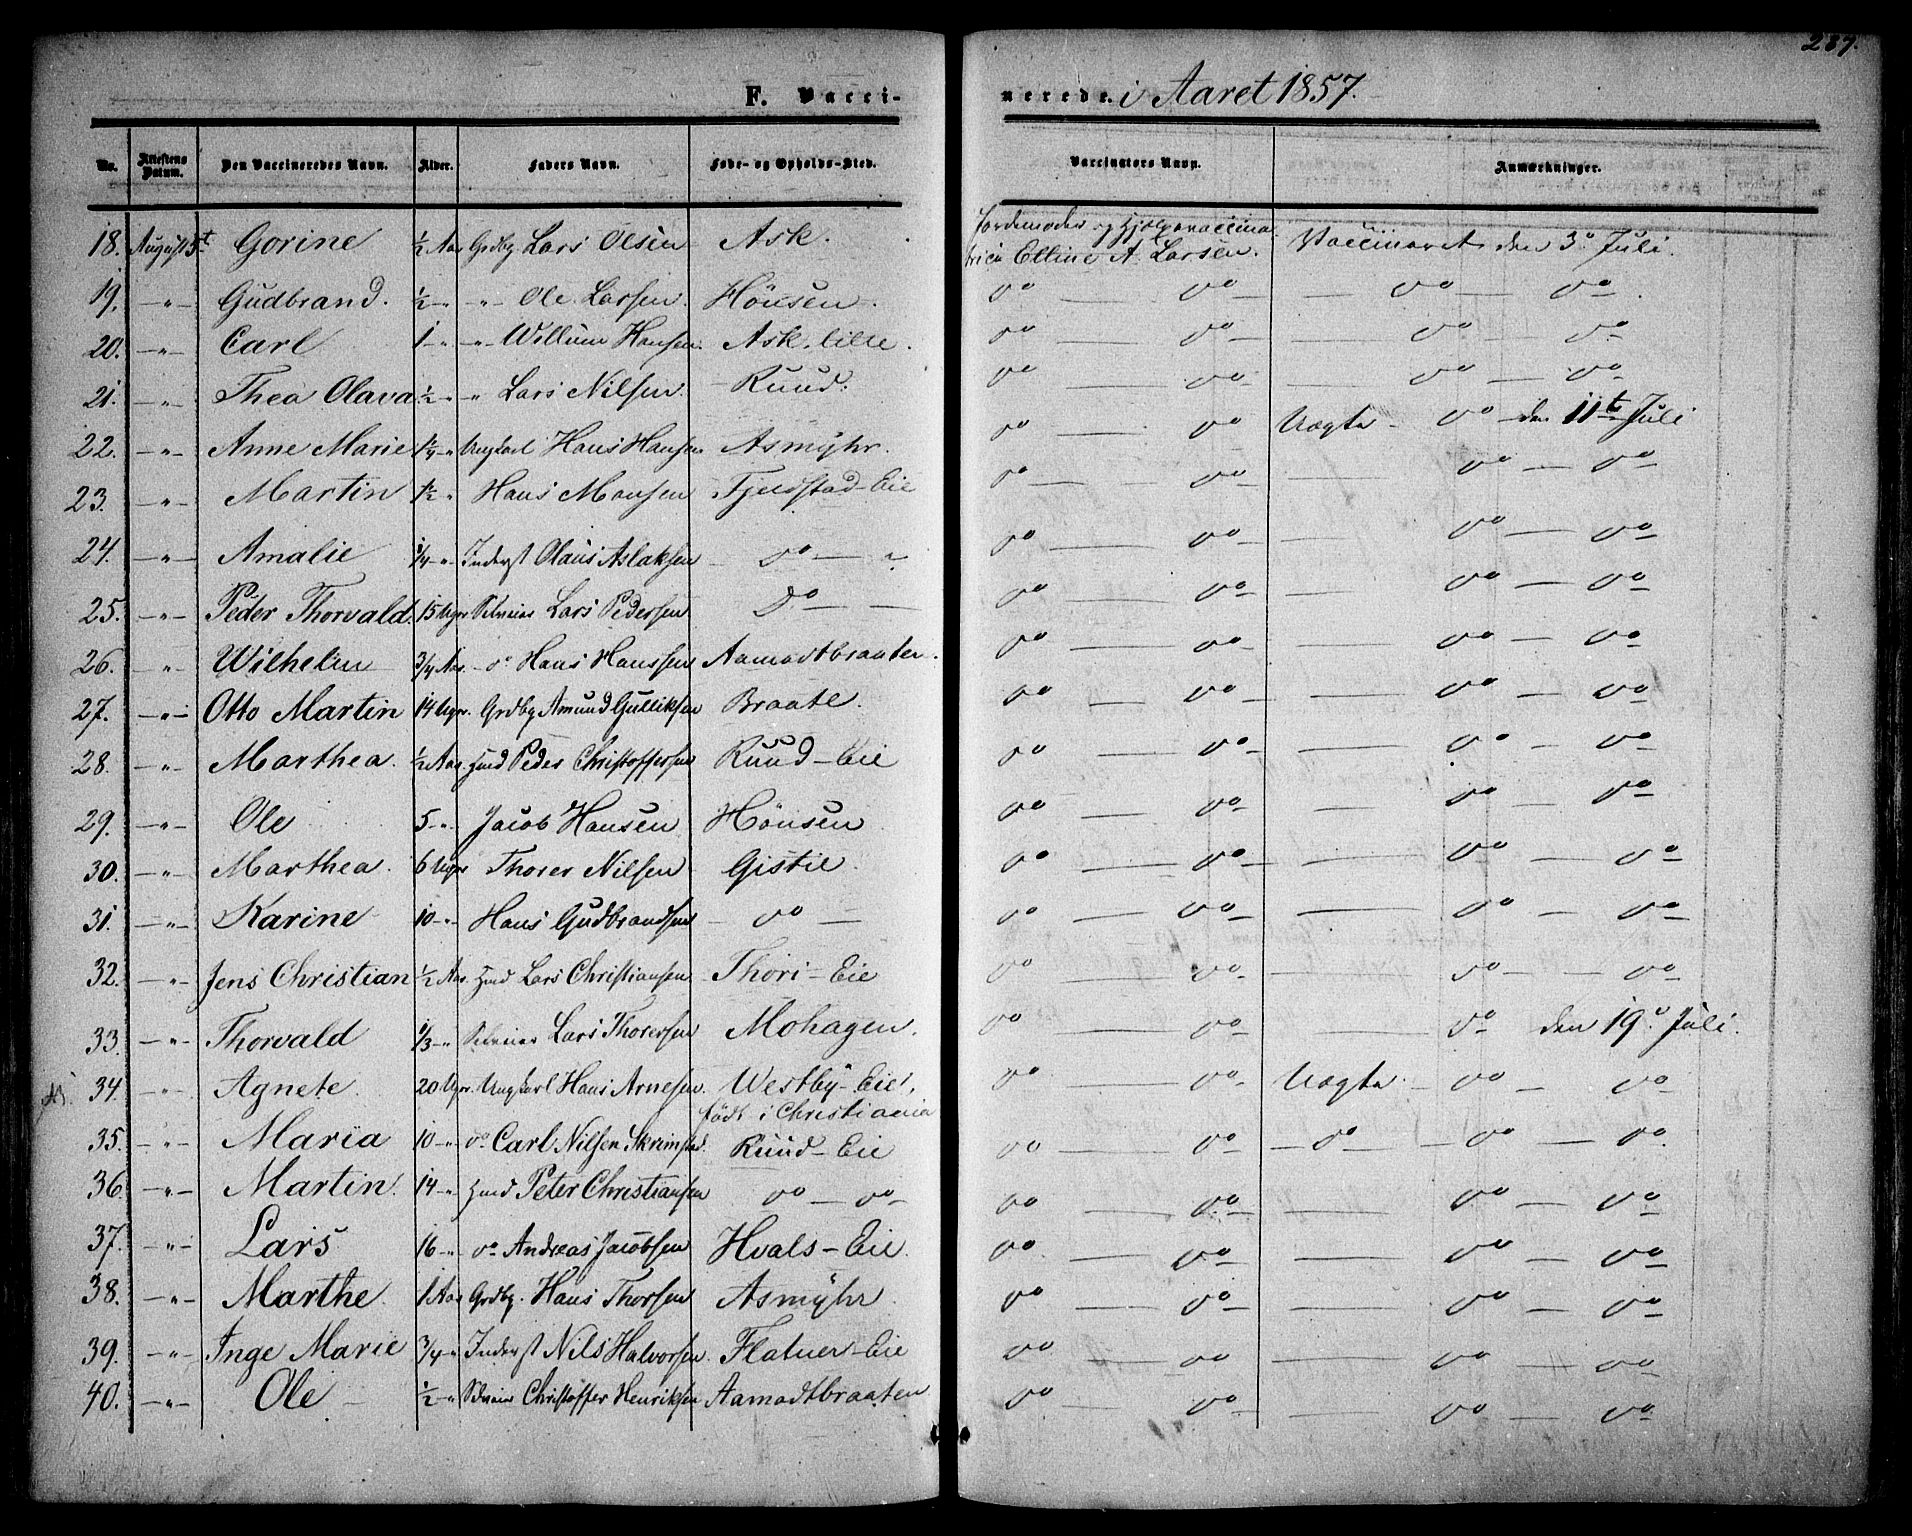 287.
F. Vacci- nerede. i Aaret 1857.
No. Attestens Datum. Den Vaccineredes Navn. Alder. Faders Navn. Føde- og Opholds-Sted. Vaccinators Navn. Anmærkninger.
18. August 5t Gorine ½ Aar Grdbg Lars Olsen Ask. Jordemoder og Hjelpevaccina trice Elline A. Larsen. Vaccineret den 3o Juli.
19. -"- Gudbrand. ½ -"- " Ole Larsen Hönsen. do do do do
20. -"- Carl 1 -"- " Willum Hansen. Ask. lille. do do do do
21. -"- Thea Olava ½ -"- " Lars Nilsen Ruud. do do do do
22. -"- Anne Marie 1¼ -"- Ungkarl Hans Hansen Asmÿhr. do do Uægte do den 11t Juli
23. -"- Martin 1½ " Hans Monsen Fjeldstad-Eie do do do do
24. -"- Amalie ¼ -"- Inderst Olaus Aslaksen do do do do do
25. -"- Peder Thorvald 15 Uger Selveier Lars Pedersen Do do do do do
26. " Wilhelm ¾ Aar do Hans Hanssen Aamodtbraaten. do do do do
27. -"- Otto Martin 14 Uger. Grdbg Amund Gulliksen Braate. do do do do
28. -"- Marthea. ½ Aar Hmd Peder Christoffersen Ruud-Eie do do do do
29. -"- Ole 5 -"- Jacob Hansen Hönsen do do do do
30. -"- Marthea. 6 Uger Thorer Nilsen Gistie. do do do do
31. -"- Karine 10 -"- Hans Gudbrandsen - do - do do do do
32. -"- Jens Christian ½ Aar Hmd Lars Christiansen Thori-Eie do do do do
33. -"- Thorvald 1/3 -"- Selveier Lars Thorersen Mohagen. do do do den 19o Juli.
34. " Agnete 20 Uger. Ungkarl Hans Arnesen. Westbÿ-Eie, do do Uægte. do do
födt i Christiania
35. -"- Maria 10 -"- do Carl Nilsen Skrimstad. Ruud-Eie do do do do do
36. -"- Martin. 14 -"- Hmd Peter Christiansen do do do do do do
37. -"- Lars 16 -"- do Andreas Jacobsen Hvals-Eie. do do do do
38. -"- Marthe. 1 Aar Grdbg. Hans Thorsen Asmÿhr do do do do
39. -"- Inge Marie ¾ -"- Inderst Nils Halvorsen. Flatner-Eie do do do do
40. -"- Ole ½ -"- Selveier Christoffer Henriksen Aamodtbraaten do do do do